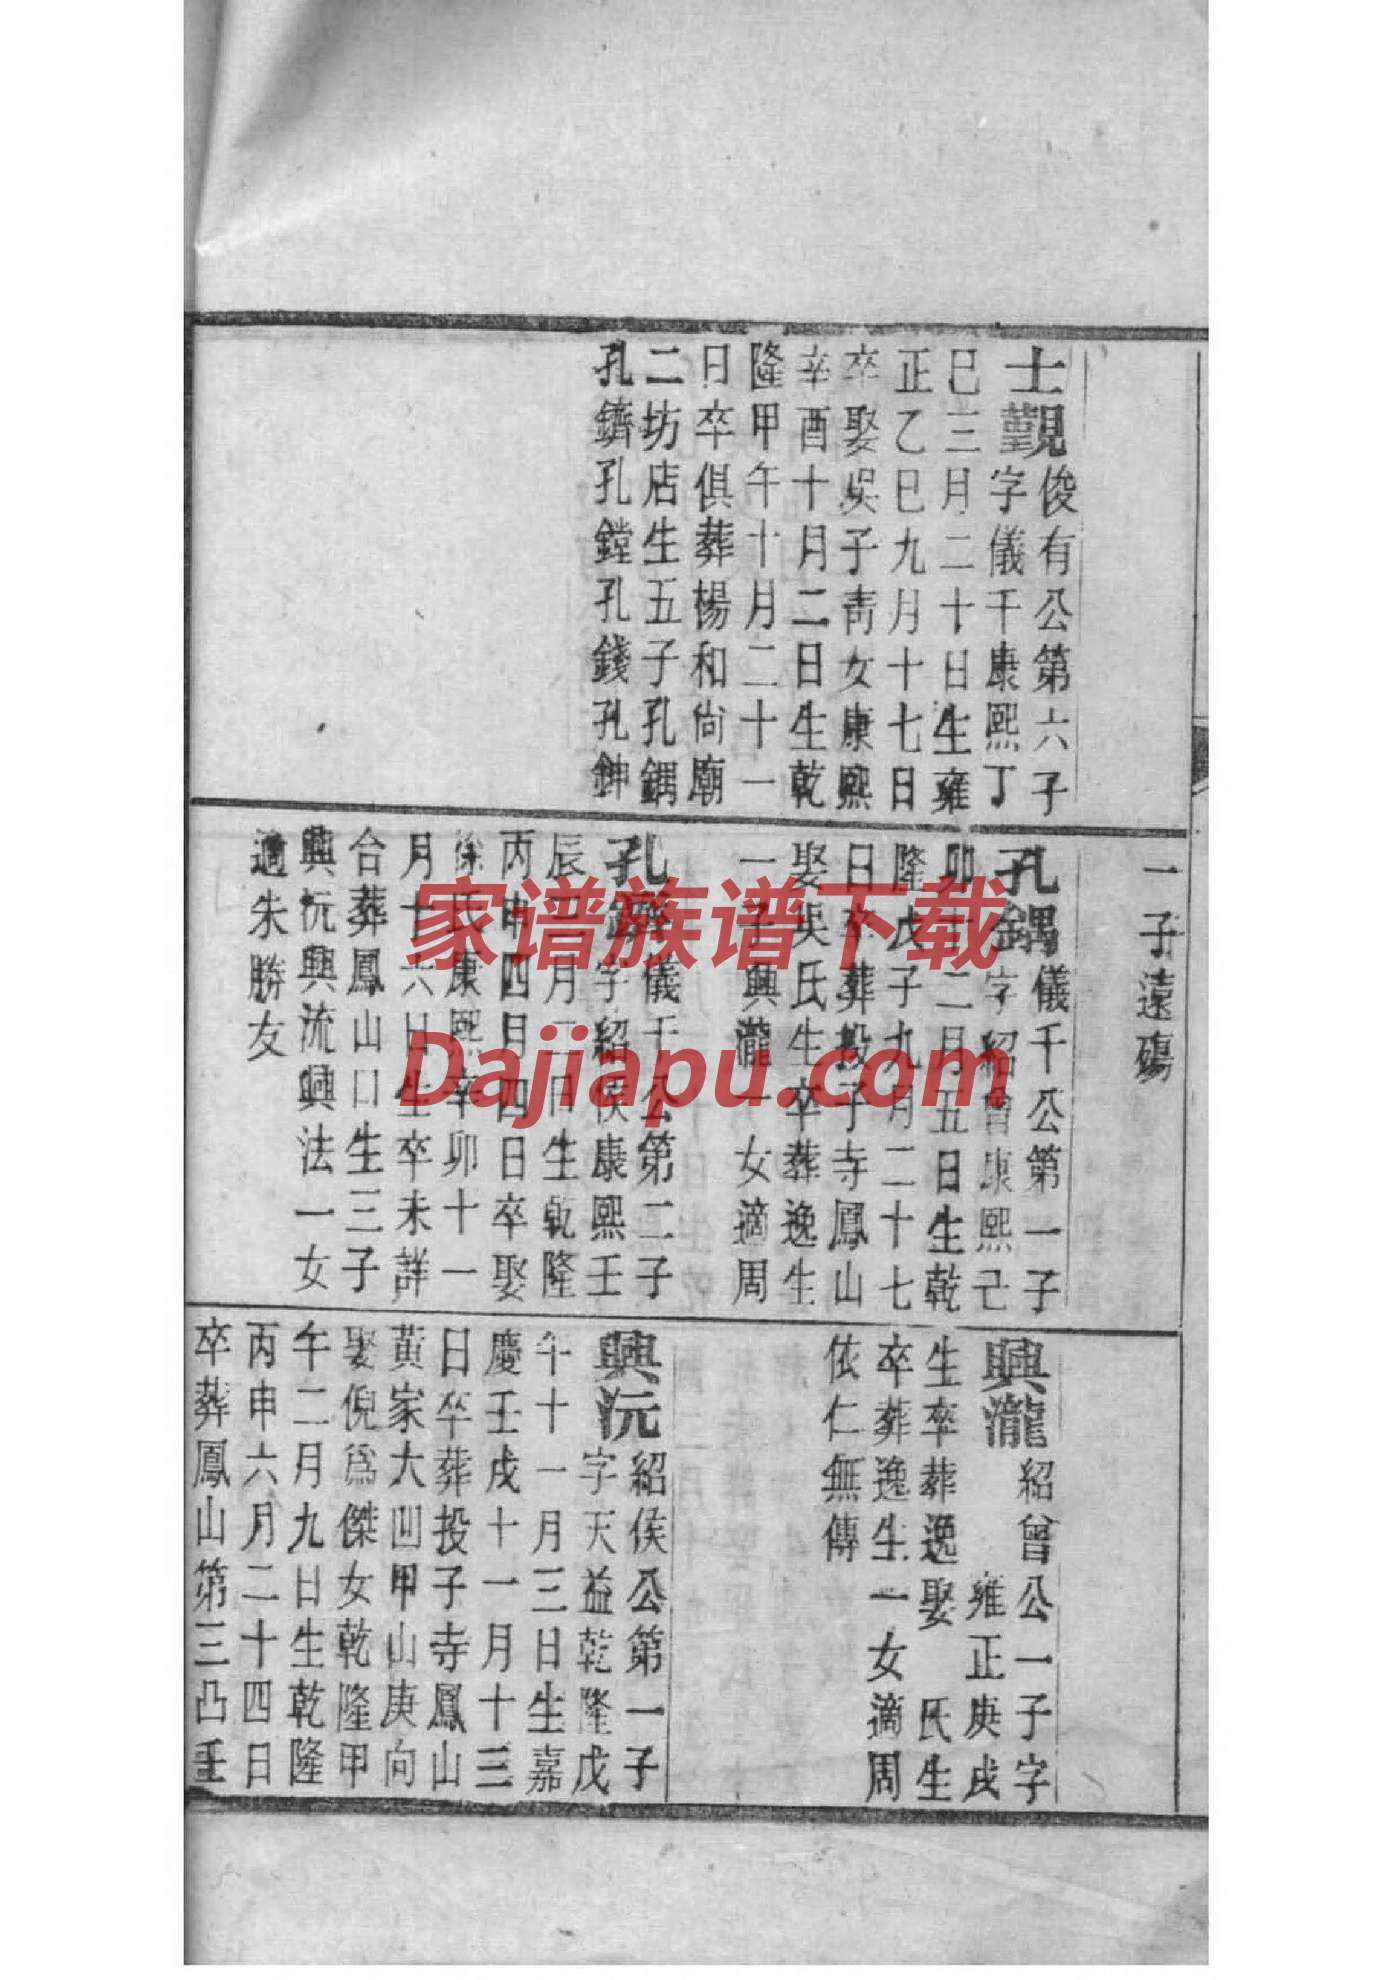 士觐俊有公第六子
字儀千康熙丁
巳三月二十日生雍
正乙巳九月十七日
卒娶吳子青女康熙
辛酉十月二日生乾
隆甲午十月二十一
日卒俱葬楊和尙廟
二坊店生五子孔鍝
孔鑇孔鏜孔錢孔鈡
一子遠殤
孔鍝儀千公第一子
字紹曾康熙己
卯十二月五日生乾
隆戊子九月二十七
日卒葬投子寺鳳山
娶吳氏生卒葬逸生
一子興瀧一女適周
孔儀千公第二子
字紹侯康熙壬
辰二月二日生乾隆
丙申四月四日卒娶
徐氏康熙辛卯十一
月十六日生卒未詳
合葬鳳山口生三子
興沅興流興法一女
適朱勝友
興瀧紹曾公一子字
雍正庚戌
生卒葬逸娶 氏生
卒葬逸生一女適周
依仁無傳
興沅紹侯公第一子
字天益乾隆戊
午十一月三日生嘉
慶壬戌十一月十三
日卒葬投子寺鳳山
黃家大凹甲山庚向
娶倪爲傑女乾隆甲
午二月九日生乾隆
丙申六月二十四日
卒葬鳳山第三凸壬
家谱族谱下载
Dajiapu.com